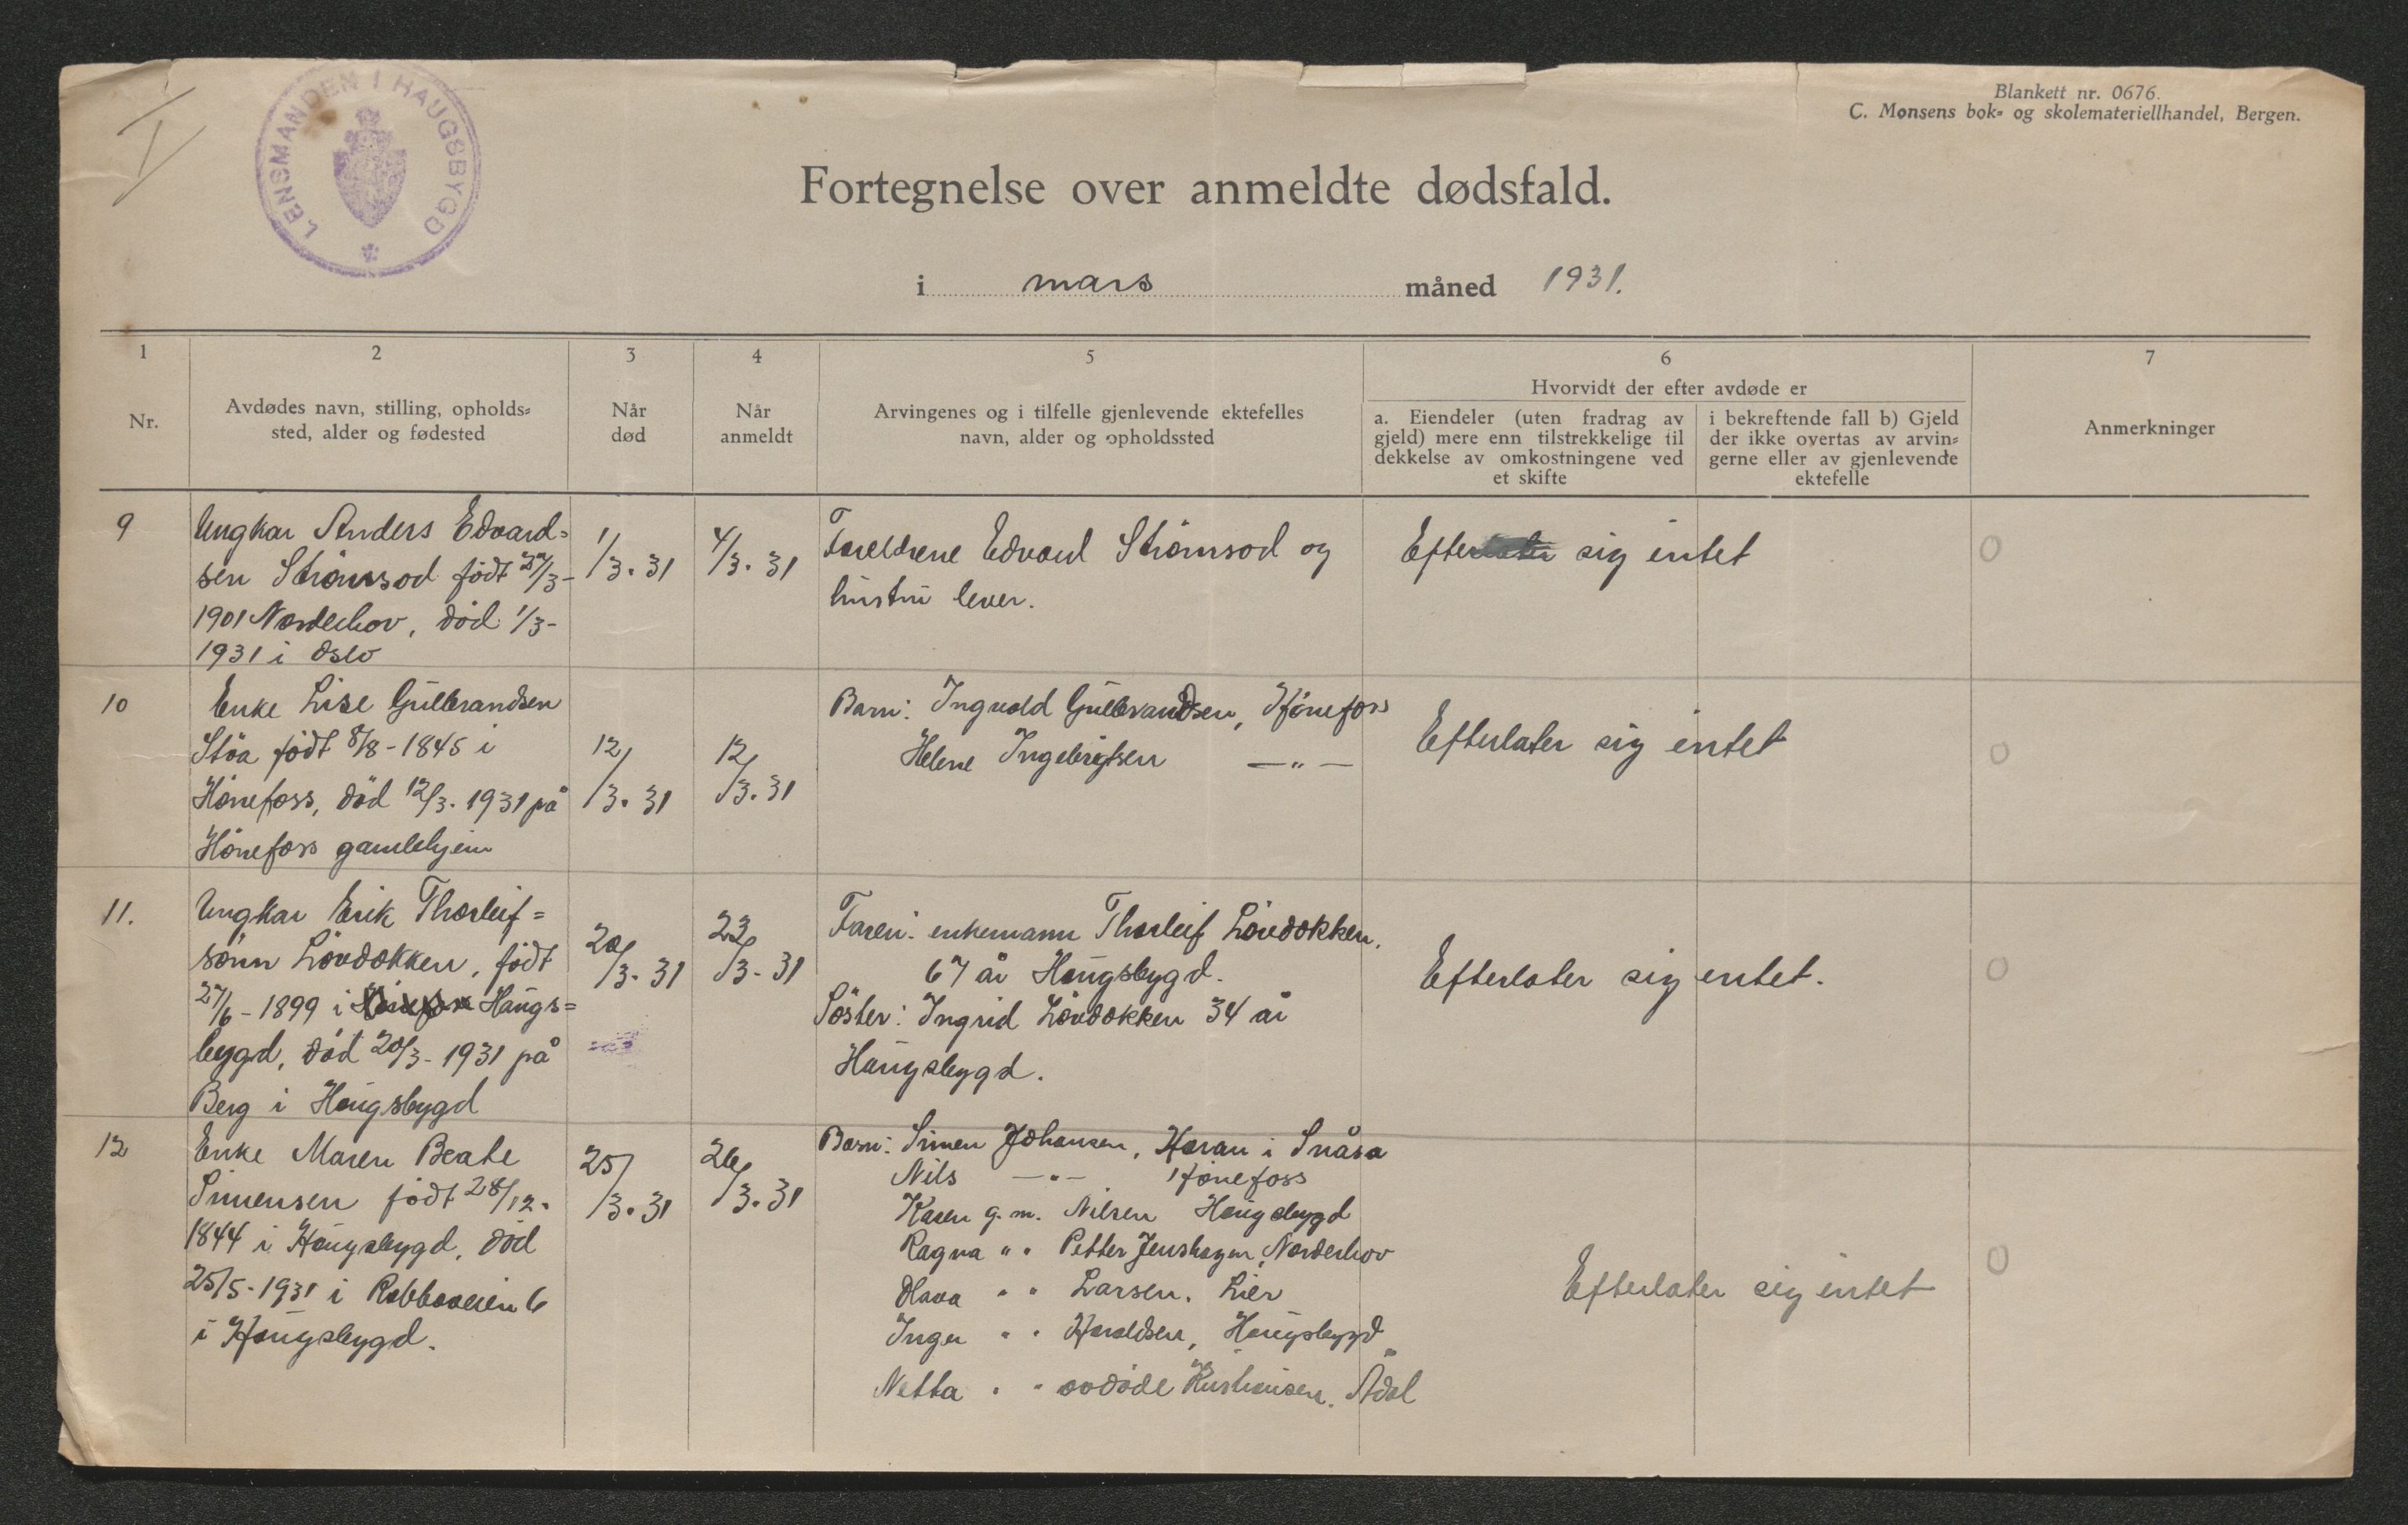 LENSMANDEN I HAUGSBYGD
Blankett nr. 0676.
C. Monsens bok- og skolemateriellhandel, Bergen.
Fortegnelse over anmeldte dødsfald.
i mars måned 1931.
1
Nr.
2
Avdødes navn, stilling, opholds-
sted, alder og fødested
3
Når
død
4
Når
anmeldt
5
Arvingenes og i tilfelle gjenlevende ektefelles
navn, alder og opholdssted
6
Hvorvidt der efter avdøde er
a. Eiendeler (uten fradrag av
gjeld) mere enn tilstrekkelige til
dekkelse av omkostningene ved
et skifte
i bekreftende fall b) Gjeld
der ikke overtas av arvin-
gerne eller av gjenlevende
ektefelle
7
Anmerkninger
9
Ungkar Anders Edvard-
sen Strömsod födt /3-
1901 Norderhov, död 1/3-
1931 i Oslo
1/3. 31
4/3. 31
Foreldrene Edvard Strömsod og
hustru lever.
Efterlater sig intet
0
10
Enke Lise Gulbrandsen
Stöa födt 8/8-1845 i
Hönefoss, död 12/3. 1931 på
Hönefoss gamlehjem
12/3. 31
12/3. 31
Barn: Ingvald Gulbrandsen, Hönefoss
Helene Ingebrigtsen —"—
Efterlater sig intet
0
11.
Ungkar Erik Thorleif-
sönn Lövdokken, födt
27/6-1899 i Haugs-
bygd, död 20/3-1931 på
Berg i Haugsbygd
20/3. 31
23/3-31
Faren: enkemann Thorleif Lövdokken,
67 år Haugsbygd.
Söster: Ingrid Lövdokken 34 år
Haugsbygd.
Efterlater sig intet.
0
12
Enke Maren Beate
Simensen födt 28/12.
1844 i Haugsbygd, död
25/5-1931 i Robbaveien 6
i Haugsbygd.
25/3. 31
26/3. 31
Barn: Simen Johansen, Haran i Snåsa
Nils —"— Hönefoss
Karen g. m. Nilsen Haugsbygd
Ragna " " Petter Jenshagen, Norderhov
Olava " " Larsen, Lier
Inger " " Haraldsen, Haugsbygd
Netta " " avdöde Kristiansen, Ådal
Efterlater sig intet
0